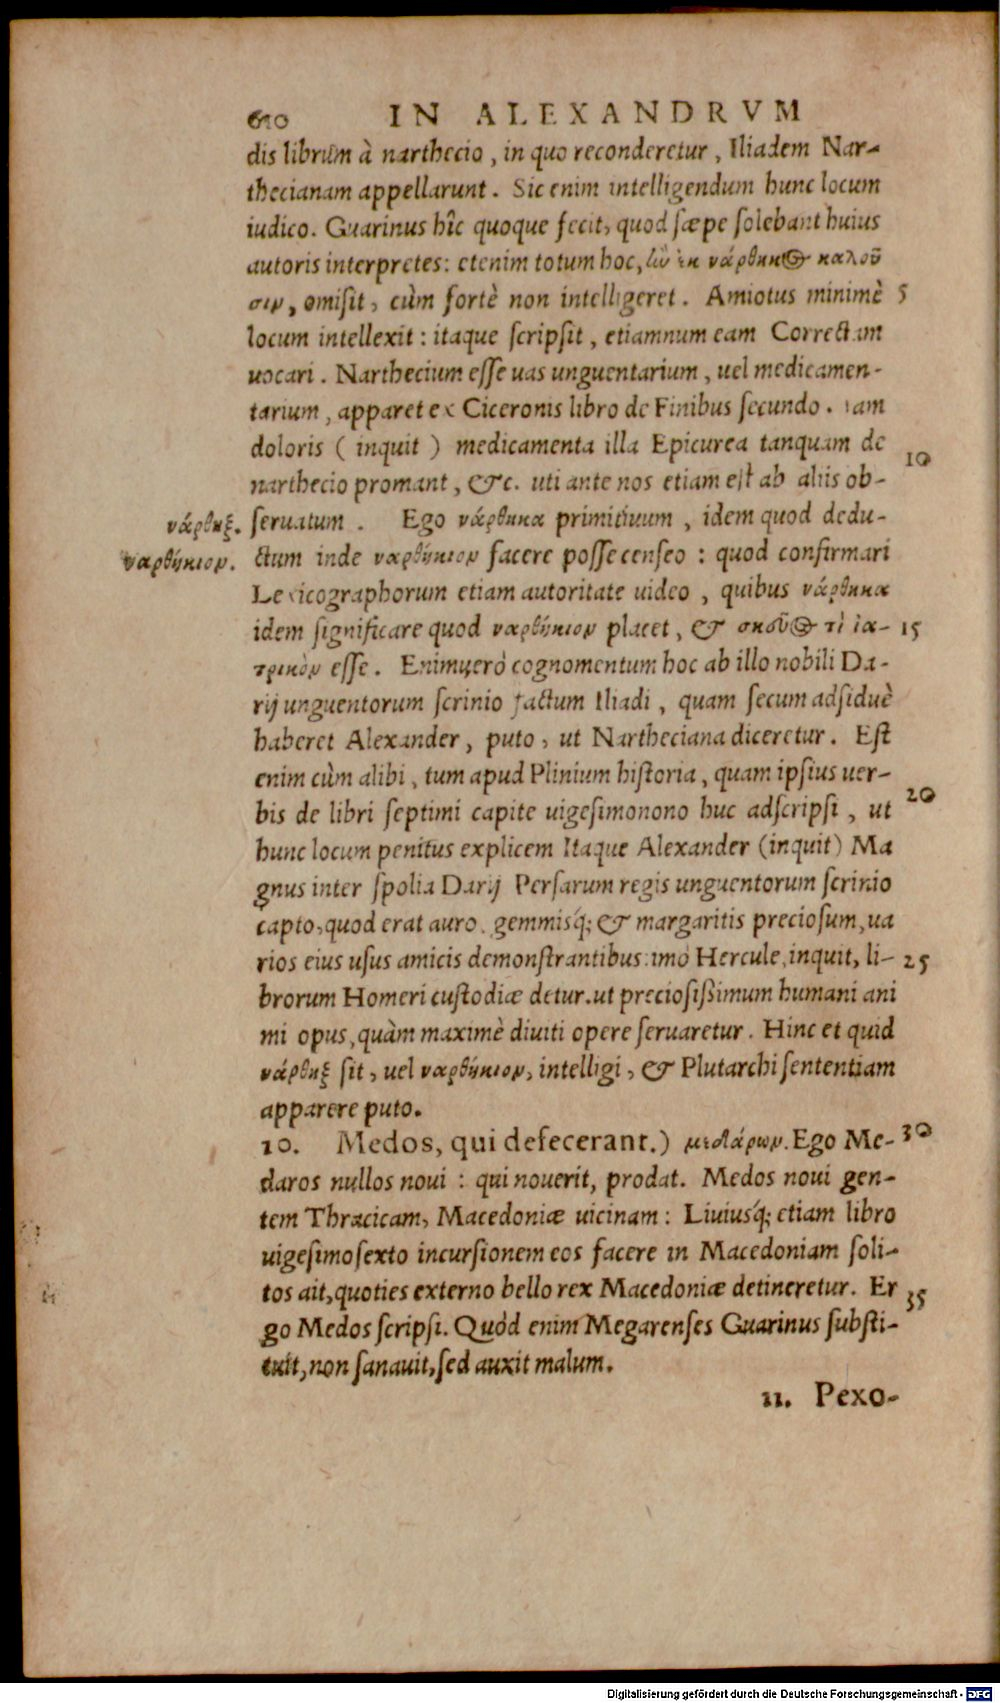 610 IN ALEXANDRVM
dis librum à narthecio, in quo reconderetur, Iliadem Nar-
thecianam appellarunt. Sic enim intelligendum hunc locum
iudico. Guarinus hîc quoque fecit, quod sæpe solebant huius
autoris interpretes: etenim totum hoc, ἣν ἐκ νάρθηκος καλοῦ
σιν, omisit, cùm fortè non intelligeret. Amiotus minimè 5
locum intellexit: itaque scripsit, etiamnum eam Correctam
uocari. Narthecium esse uas unguentarium, uel medicamen-
tarium, apparet ex Ciceronis libro de Finibus secundo. iam
doloris (inquit) medicamenta illa Epicurea tanquam de
narthecio promant, &c. uti ante nos etiam est ab aliis ob- 10
νάρθηξ. seruatum. Ego νάρθηκα primitiuum, idem quod dedu-
ναρθήκιον. ctum inde ναρθήκιον facere posse censeo: quod confirmari
Lexicographorum etiam autoritate uideo, quibus νάρθηκα
idem significare quod ναρθήκιον placet, & σκοῦος τὶ ἰα- 15
τρικὸν esse. Enimuerò cognomentum hoc ab illo nobili Da-
rij unguentorum scrinio factum Iliadi, quam secum adsiduè
haberet Alexander, puto, ut Nartheciana diceretur. Est
enim cùm alibi, tum apud Plinium historia, quam ipsius uer-
bis de libri septimi capite uigesimonono huc adscripsi, ut 20
hunc locum penitus explicem Itaque Alexander (inquit) Ma
gnus inter spolia Darij Persarum regis unguentorum scrinio
capto, quod erat auro, gemmisq́; & margaritis preciosum, ua
rios eius usus amicis demonstrantibus: imò Hercule, inquit, li- 25
brorum Homeri custodiæ detur, ut preciosißimum humani ani
mi opus, quàm maximè diuiti opere seruaretur. Hinc et quid
νάρθηξ sit, uel ναρθήκιον, intelligi, & Plutarchi sententiam
apparere puto.
10. Medos, qui defecerant.) μεδάρων. Ego Me- 30
daros nullos noui: qui nouerit, prodat. Medos noui gen-
tem Thracicam, Macedoniæ uicinam: Liuiusq́; etiam libro
uigesimosexto incursionem eos facere in Macedoniam soli-
tos ait, quoties externo bello rex Macedoniæ detineretur. Er
go Medos scripsi. Quòd enim Megarenses Guarinus substi- 35
tuit, non sanauit, sed auxit malum.
11. Pexo-
Digitalisierung gefördert durch die Deutsche Forschungsgemeinschaft - DFG